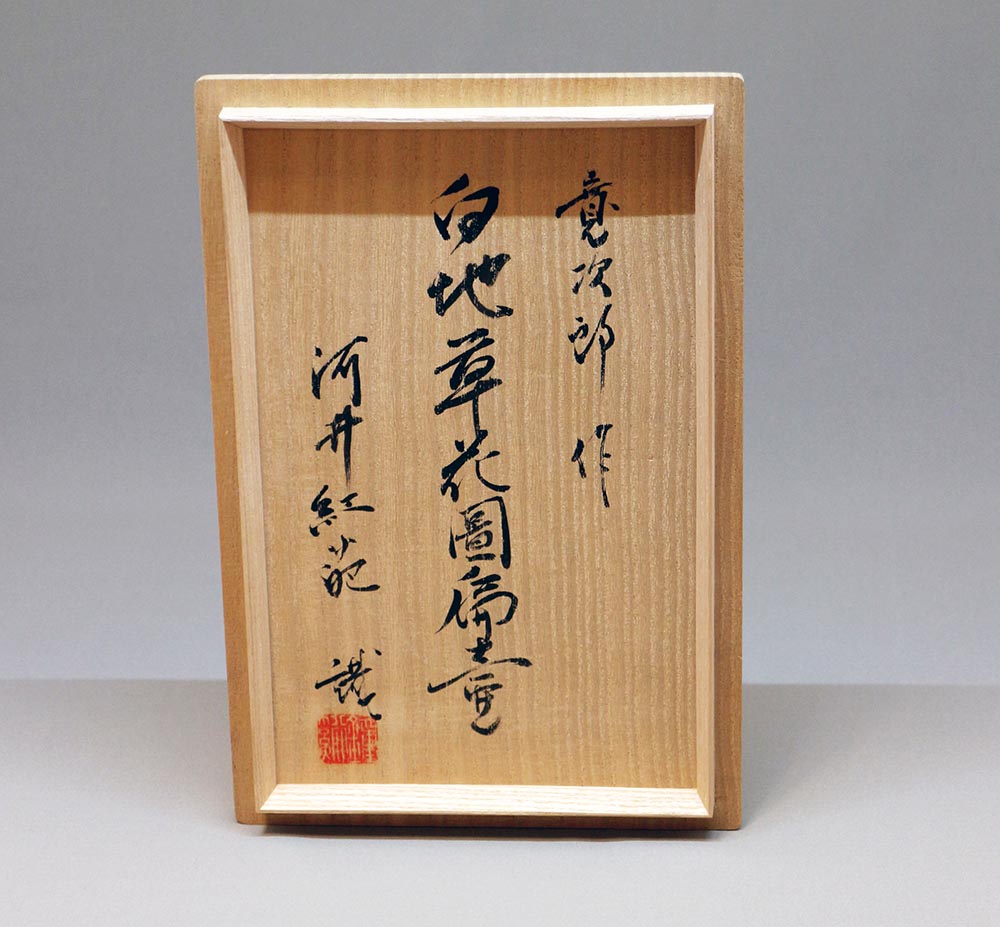 寛次郎 作
白地草花圖扁壷
河井紅葩 識